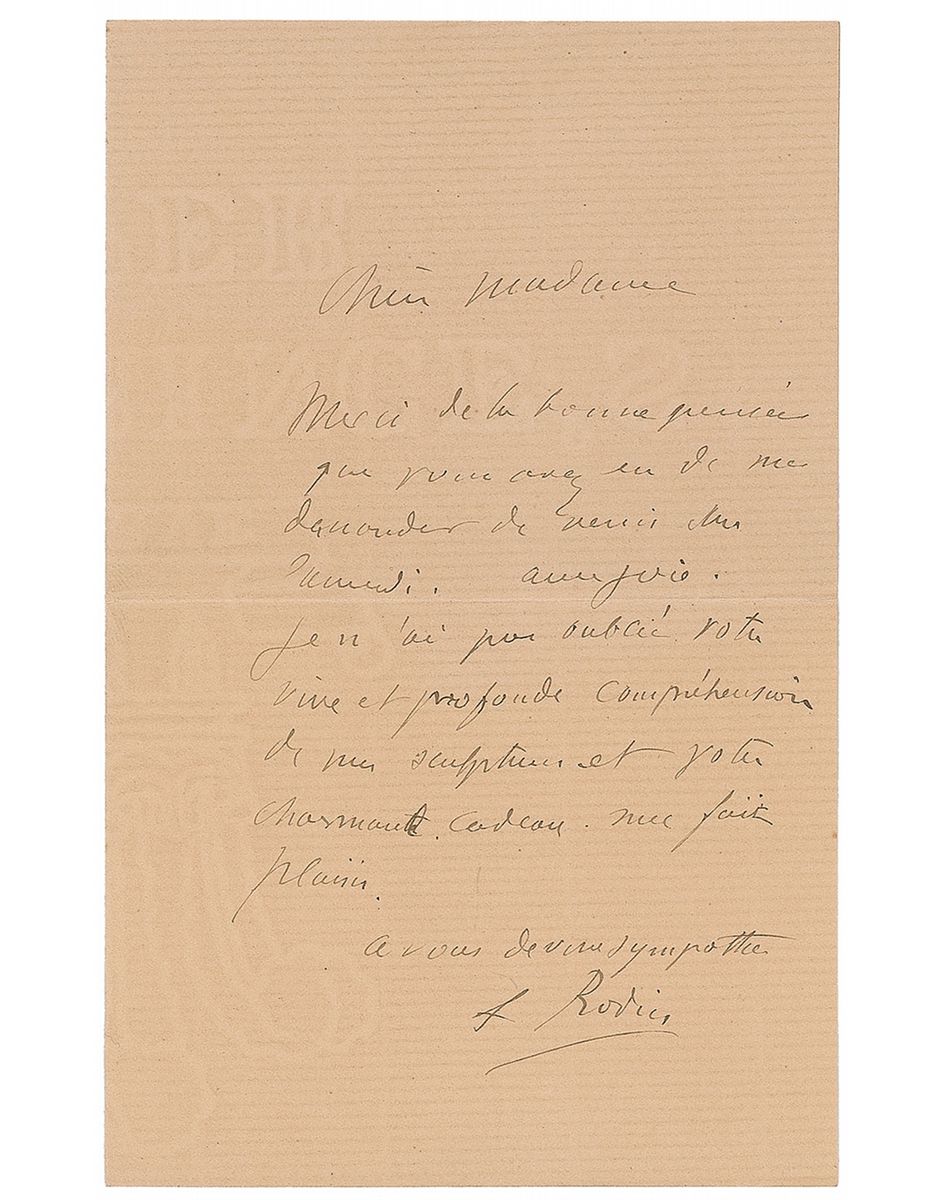 Chère madame
Merci de la bonne pensée
que vous avez eu de me
demander de venir
Samedi. avec joie.
Je n'ai pas oublié votre
vive et profonde compréhension
de mes sculptures et votre
charmant cadeau me fait
plaisir.
a vous de vive sympathie
A Rodin